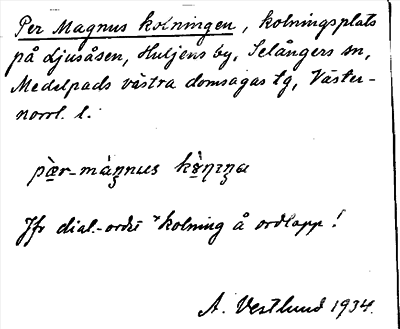 Per Magnus kolningen, kolningsplats
på djusåsen, Huljens by, Selångers sn,
Medelpads västra domsagas tg, Väster-
norrl. l.
pær-máŋnus kò̤ŋɪŋa
Jfr dial.-ordet kolning å ordlapp!
A. Vestlund 1934.